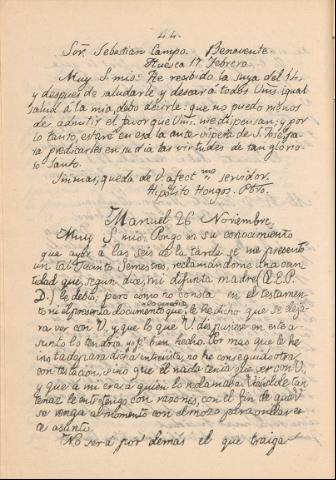 44.
Sor. Sebastian Campo. Benavente.
Huesca 17 Febrero.
Muy S. mio: He recibido la suya del 14,
y despues de saludarle y desear á todos Vms. igual
salud á la mia, debo decirle: que no puedo menos
de admitir el favor que Vms. me dispensan; y por
lo tanto, estaré en esa la ante vispera de S. José pa
ra predicarles en su dia las virtudes de tan glorio-
so Santo.
Sin mas, queda de V. afectmo servidor.
Hipólito Hongos. Pbro.
Manuel 26 Noviembre,
Muy S. mio: Pongo en su conocimiento
que ayer á las seis de la tarde se me presentó
un tal Jacinto Semestres, reclamándome una can
tidad que, segun dice, mi difunta madre (Q.E.P.
D.) le debia, pero como no consta en el testamen
to ni el presenta documento que le he dicho que se deja
ra ver con V, y que lo que V. dispusiere en este a-
sunto lo tendria yo por bien hecho. Por mas que le he
instado para dicha entrevista, no he conseguido otra
contestacion, sino que él nada tenia que ser con V,
y que á mi era á quien lo reclamaba. Viéndole tan
tenaz le entretengo con razones, con el fin de que V.
se venga al momento con el mozo para orillar es
te asunto.
No será por demas el que traiga